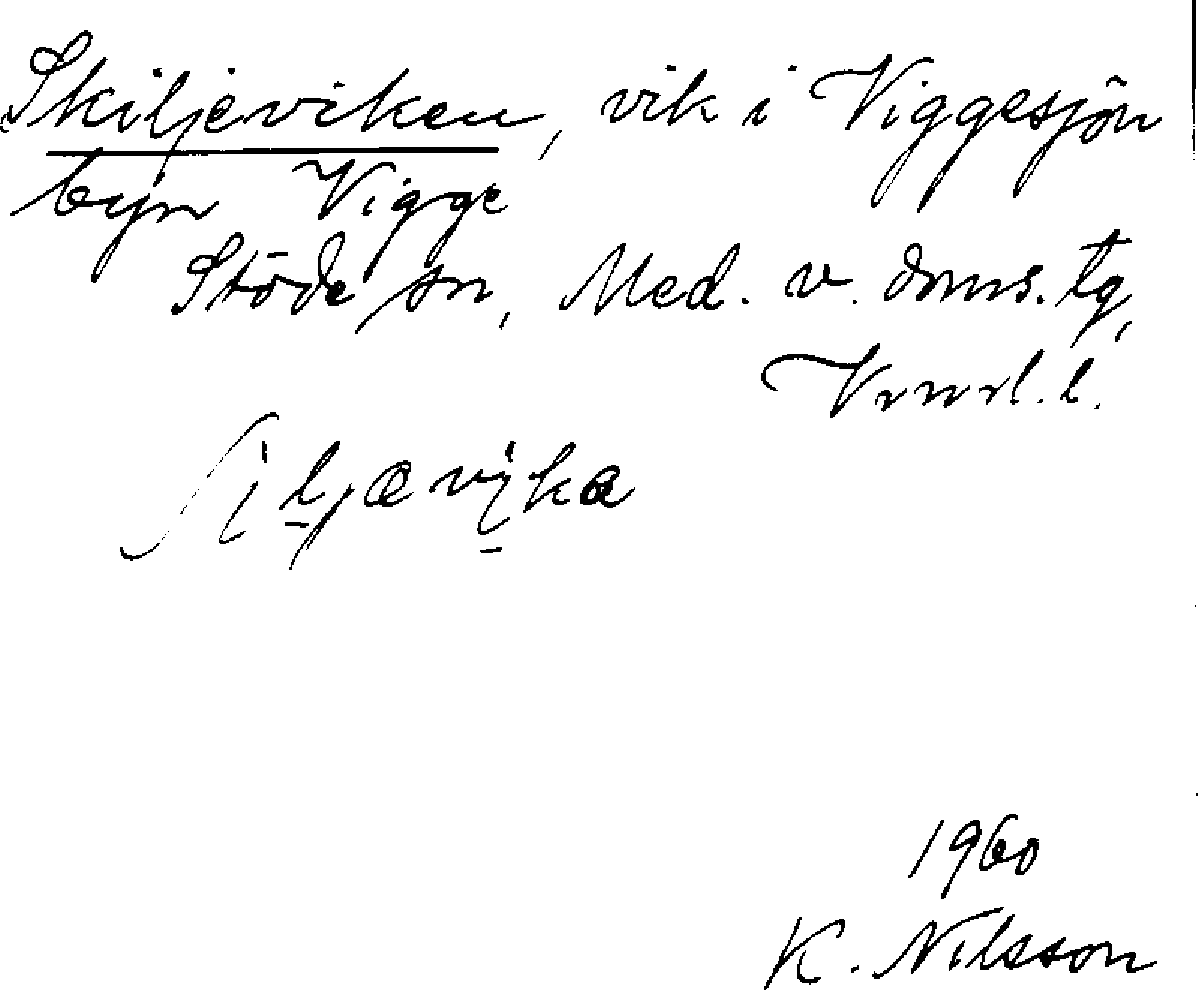 Skiljeviken, vik i Viggesjön
byn Vigge
Stöde sn, Med. v. doms. tg,
Vrnrl. l.
ʃìl̠jævi̠ka
1960
K. Nilsson